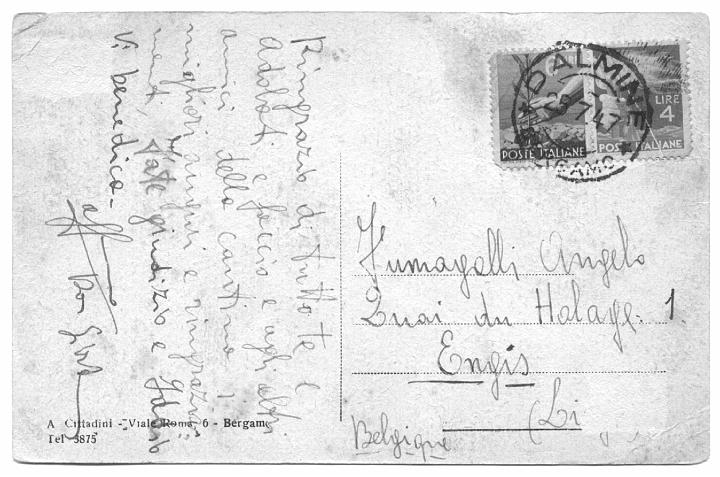 Ringrazio di tutto te e
Adobati e faccio e agli altri
amici della cantina i
migliori auguri e ringrazia=
menti, fate giudizio e Iddio
Vi benedica.
aff
Don
A Cittadini - Viale Roma, 6 - Bergamo
Tel 3875
DALMINE
25.7.47
BERGAMO
POSTE ITALIANE
LIRE
4
POSTE ITALIANE
Fumagalli Angelo
Quai du Halage. 1.
Engis
(Li
Belgique